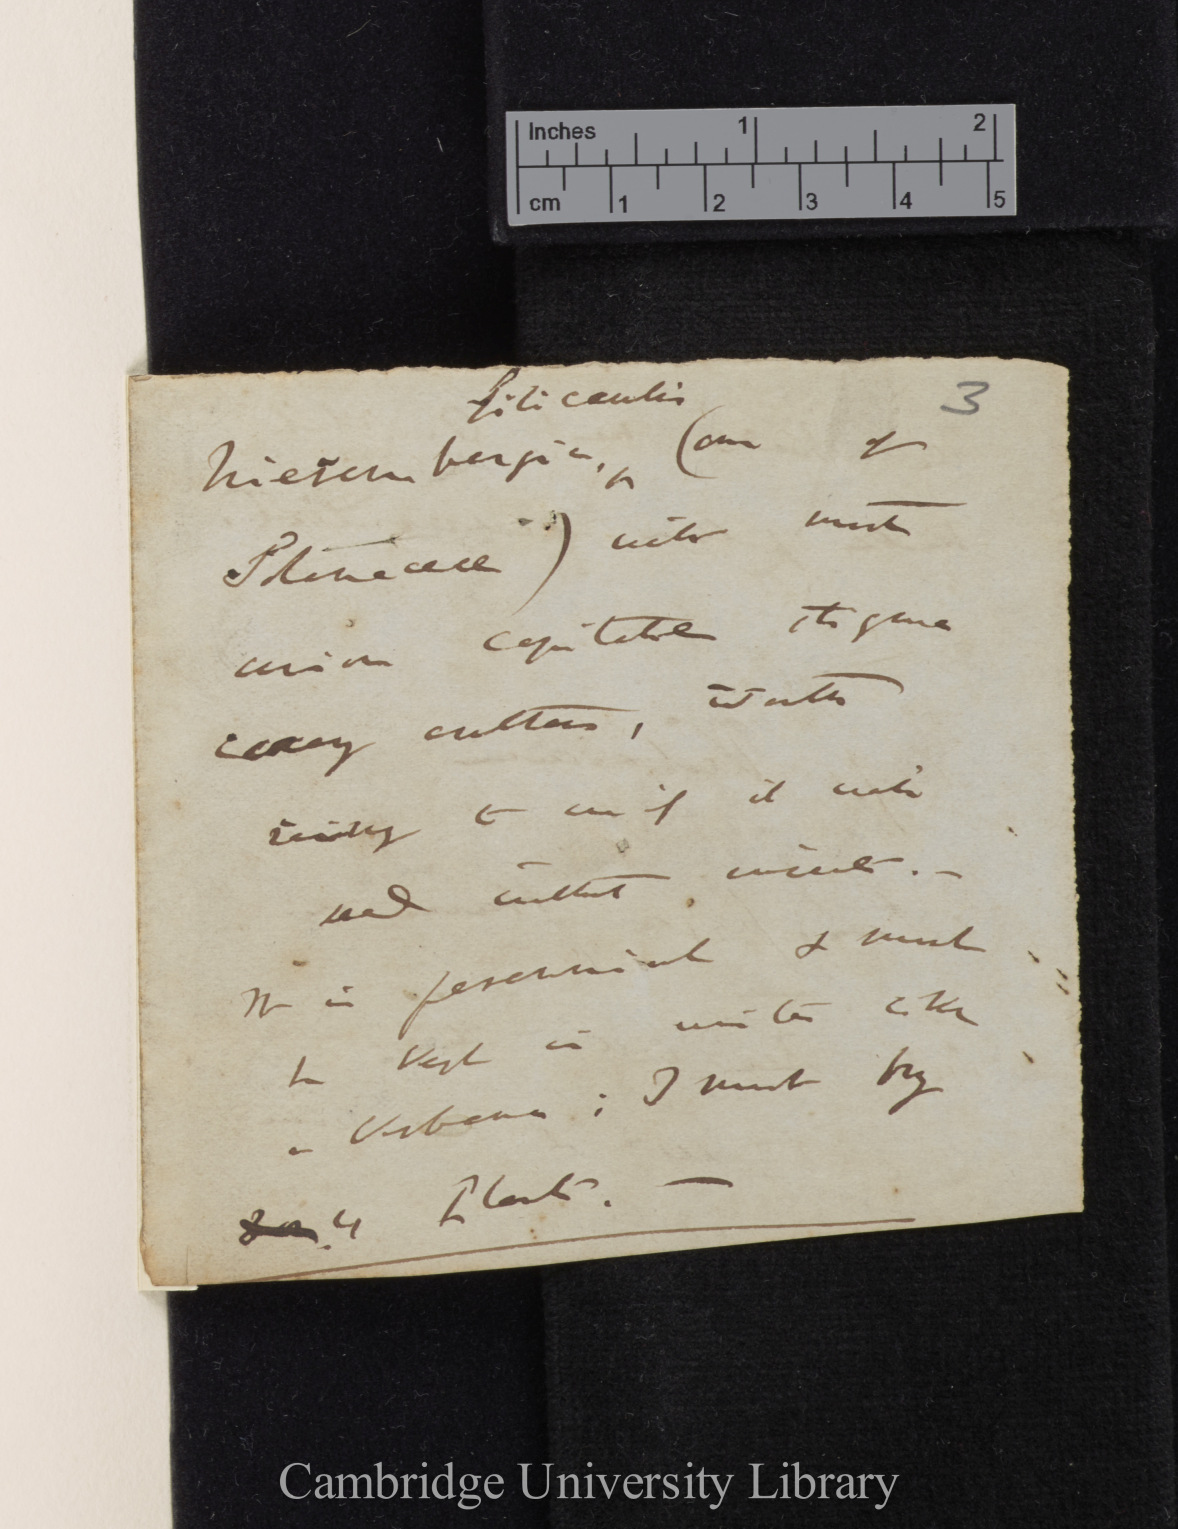 Inches 1 2
cm 1 2 3 4 5
3
filicaulis
Nierembergia, ^ (one of
Solanaceae) with most
capitate stigma
anthers, worth
trying to see if it will
seed without insects. —
It is perennial & must
be kept in winter like
a Verbena; I must try
4 Plants. —
Cambridge University Library